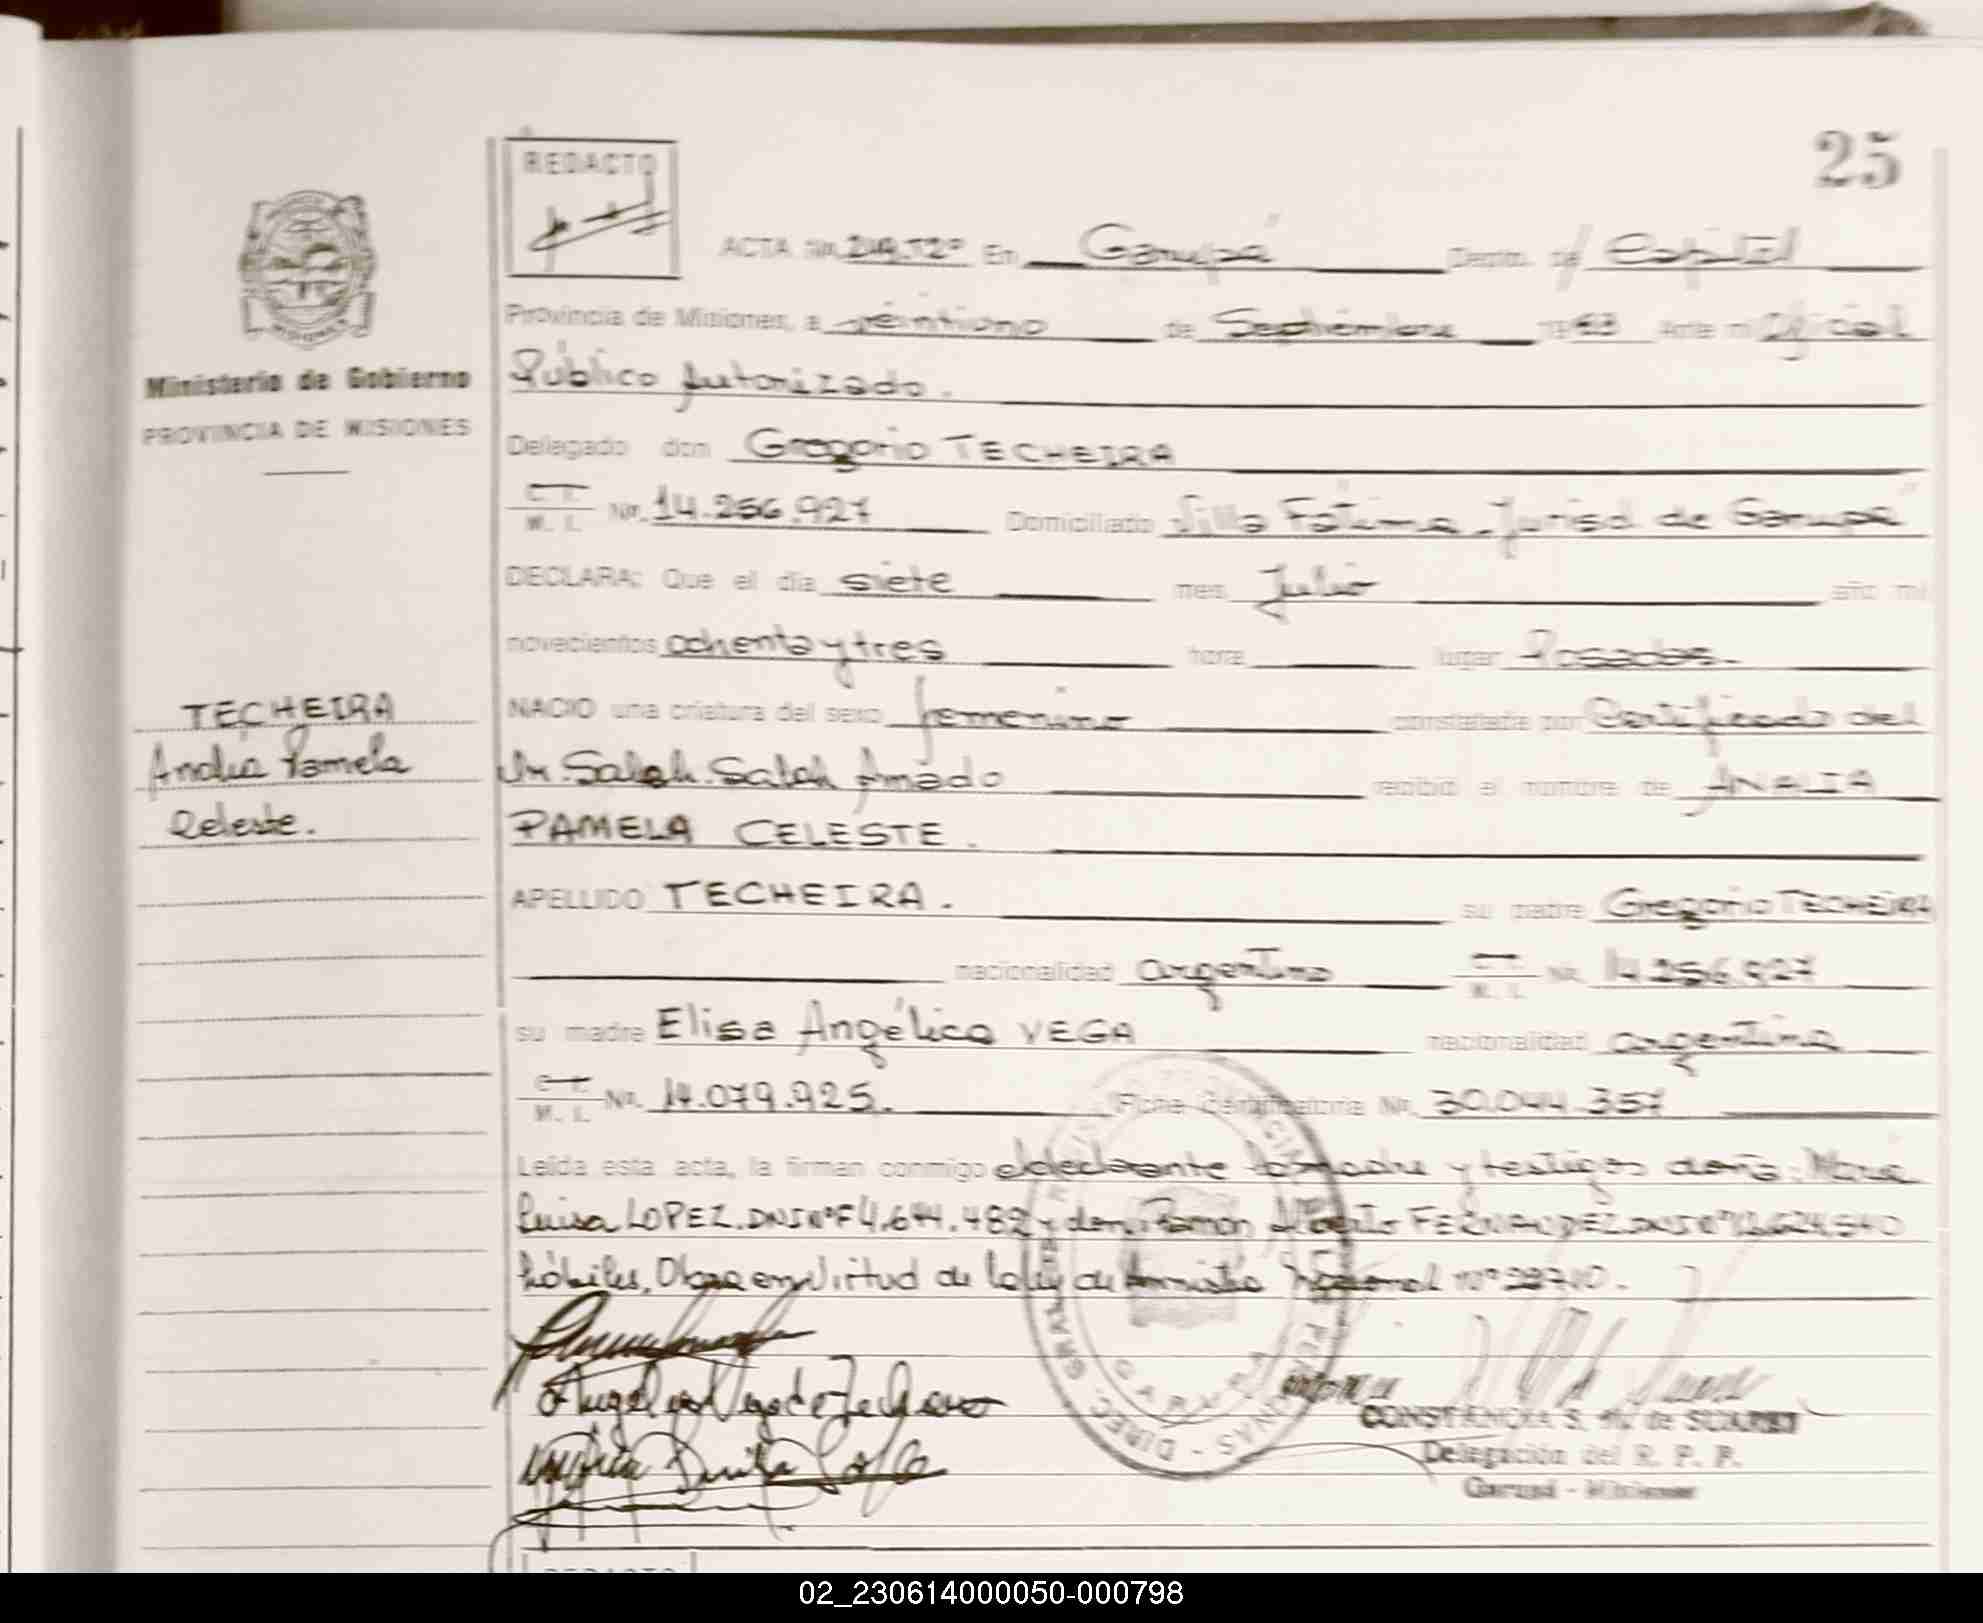 25
REDACTO
ACTA Nº 249.T2º En Garupá Depto. de Capital
Provincia de Misiones, a veintiuno de Septiembre 1983 Ante mi Oficial
Público Autorizado.
Ministerio de Gobierno
PROVINCIA DE MISIONES
Delegado don Gregorio TECHEIRA
M. I. Nº. 14.256.927 Domiciliado Villa Fátima - Jurisd. de Garupá
DECLARA: Que el día siete mes Julio año mil
novecientos ochenta y tres hora lugar Posadas.-
NACIO una criatura del sexo femenino constatada por Certificado del
Dr. Saleh. Saleh Amado recibió el nombre de ANALIA
PAMELA CELESTE.
TECHEIRA
Analia Pamela
Celeste.
APELLIDO TECHEIRA. su padre Gregorio TECHEIRA
nacionalidad argentino M. I. Nº. 14.256.927
su madre Elisa Angélica VEGA nacionalidad argentina
M. I. Nº. 14.079.925. Ficha Certificatoria Nº. 30.044.357
Leída esta acta, la firman conmigo el declarante la madre y testigos doña: María
Luisa LOPEZ. DNI Nº F4.644.482 y don: Ramon Alberto FERNANDEZ DNI Nº
hábiles. Obra en virtud de la ley de Amnistía Nacional Nº 22710.
CONSTANCIA S. de SUAREZ
Delegación del R. P. P.
Garupá - Misiones
REDACTO
02_230614000050-000798